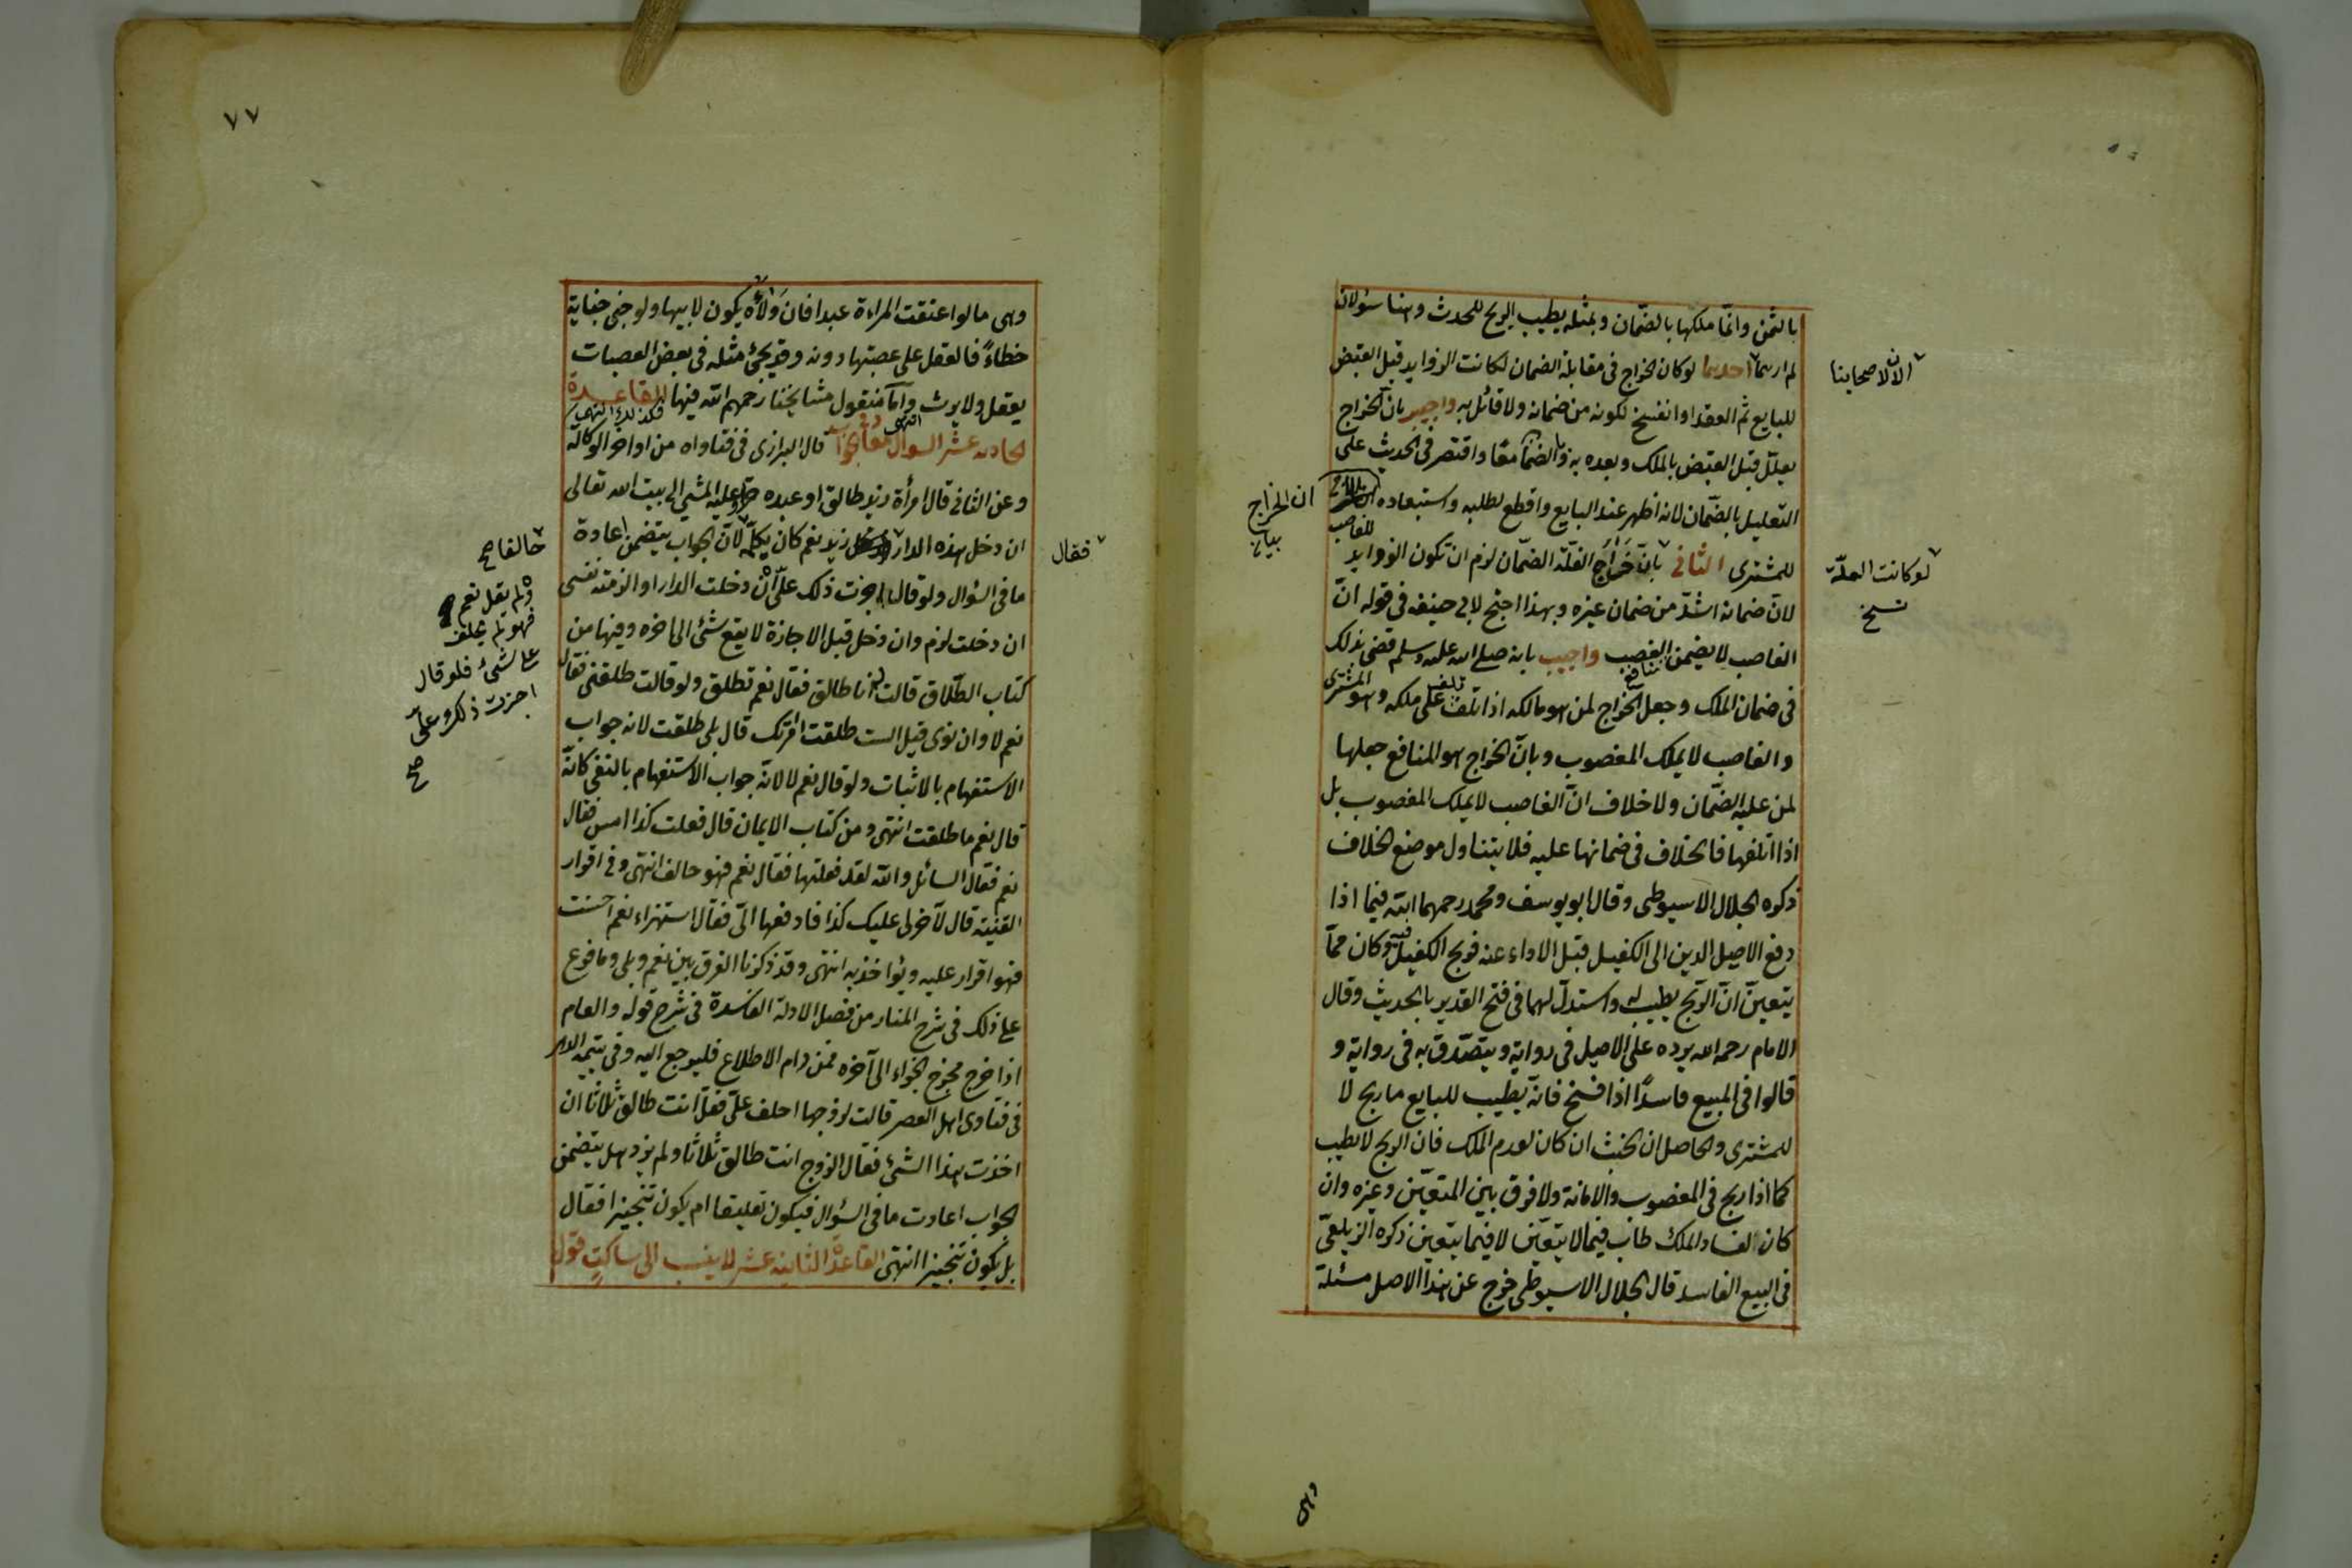 بالثمن وانما ملكها بالضمان وبمثله يطيب الربح للحدث وهنا سؤلان
لم ارهما احدهما لو كان الخراج فى مقابلة الضمان لكانت الزوايد قبل القبض
الآن لاصحابنا
للبايع تم العقد او انفسخ لكونه من ضمانه ولا قائل به واجيب بان الخراج
يعلل قبل القبض بالملك وبعده به وبالضمان معًا واقتصر فى الحديث على
التعليل بالضمان لانه اظهر عند البايع واقطع لطلبه واستبعاده
ان الخراج
للمشترى الثانى بان الغلة الضمان لزم ان تكون الزوايد للغاصب
لو كانت العلة
نسخ
لان ضمانه اشدّ من ضمان غيره وبهذا احتج لابى حنيفه فى قوله انّ
الغاصب لا يضمن منافع الغصب واجيب بانه صلى الله عليه وسلم قضى بذلك
فى ضمان الملك وجعل الخراج لمن هو مالكه اذا تلف على ملكه وهو المشترى
والغاصب لا يملك المغصوب وبانّ الخراج هو المنافع جعلها
لمن عليه الضمان ولا خلاف انّ الغاصب لا يملك المغصوب بل
اذا اتلفها فالخلاف فى ضمانها عليه فلا يتناول موضع الخلاف
ذكره الجلال الاسيوطى وقال ابو يوسف ومحمد رحمهما الله فيما اذا
دفع الاصيل الدين الى الكفيل قبل الاداء عنه فربح الكفيل فيه وكان ممّا
يتعينّ انّ الربح يطيب له واستدلّ لهما فى فتح القدير بالحديث وقال
الامام رحمه الله يرده على الاصيل فى رواية ويتصدّق به فى رواية و
قالوا فى المبيع فاسدًا اذا فسخ فانه يطيب للبايع ما ربح لا
للمشترى والحاصل ان الخبث ان كان لعدم الملك فان الربح لا يطيب
كما اذا ربح فى المغصوب والامانة ولا فرق بين المتعيّن وغيره وان
كان لفساد الملك طاب فيما لا يتعيّن لا فيما يتعيّن ذكره الزيلعىّ
فى البيع الفاسد قال الجلال الاسيوطى خرج عن هذا الاصل مسئلة
وهى
٧٧
وهى ما لو اعتقت المراءة عبدا فان ولاءه يكون لابنها ولو جنى جناية
خطاءً فالعقل على عصبتها دونه وقد يجئ مثله فى بعض العصبات
يعقل ولا يرث وامّا منقول مشايخنا رحمهم الله فيها فكذلك انتهى القاعدة
الحادية عشر السوال معاد فى الجواب قال البزازى فى فتاواه من اواخر الوكالة
وعن الثانى قال امرأة زيد طالق او عبده حر وعليه المشى الى بيت الله تعالى
ان دخل هذه الدار زيد نعم كان بكلّه لانّ الجواب يتضمن اعادة
فقال
حالفا صح
ما فى السؤال ولو قال اجزت ذلك علىّ ان دخلت الدار او الزمته نفسى
ولم يقل نعم
فهو لم يحلف
على شئ فلو قال
اجزت ذلك وعلىّ
صح
ان دخلت لزم وان دخل قبل الاجازة لا يقع شئ الى اخره وفيها من
كتاب الطلاق قالت له انا طالق فقال نعم تطلق ولو قالت طلقنى فقال
نعم لا وان نوى قيل الست طلقت امرأتك قال بلى طلقت لانه جواب
الاستفهام بالاثبات ولو قال نعم لا لانّه جواب الاستفهام بالنفى كانّه
قال نعم ما طلقت انتهى ومن كتاب الايمان قال فعلت كذا امس فقال
نعم فقال السائل والله لقد فعلتها فقال نعم فهو حالف انتهى وفى اقرار
القنية قال لآخر لى عليك كذا فادفعها الىّ فقال استهزاء نعم احسنت
فهو اقرار عليه ويؤاخذ به انتهى وقد ذكرنا الفرق بين نعم وبلى وما فرع
على ذلك فى شرح المنار من فصل الادلة الفاسدة فى شرح قوله والعام
اذا خرج مخرج الجزاء الى آخره فمن رام الاطلاع فليرجع اليه وفى يتيمة الدهر
فى فتاوى اهل العصر قالت لزوجها احلف علىّ فقل انت طالق ثلاثا ان
اخذت هذا الشئ فقال الزوج انت طالق ثلاثا ولم يزد هل يتضمن
الجواب اعادت ما فى السؤال فيكون تعليقا ام يكون تنجيزا فقال
بل يكون تنجيزا انتهى القاعدة الثانية عشر لا ينسب الى ساكت قول